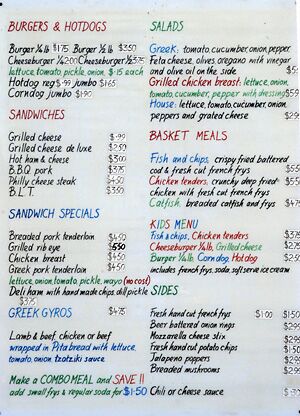 BURGERS & HOTDOGS
Burger ¼ lb $1.75 Burger ½ lb $3.50
Cheeseburger ¼ 2.00 Cheeseburger ½ $3.75
lettuce, tomato, pickle, onion, $.15 each
Hotdog reg $.99 jumbo $1.65
Corndog jumbo $1.90
SANDWICHES
Grilled cheese $.99
Grilled cheese de luxe $2.50
Hot ham & cheese $3.00
B.B.Q. pork $3.75
Philly cheese steak $4.50
B.L.T. $3.50
SANDWICH SPECIALS
Breaded pork tenderloin $4.50
Grilled rib eye 5.50
Chicken breast $4.50
Greek pork tenderloin $4.50
lettuce, onion, tomato, pickle, mayo (no cost)
Deli ham with hand made chips, dill pickle
$3.75
GREEK GYROS $4.75
Lamb & beef, chicken or beef
wrapped in Pita bread with lettuce,
tomato, onion, tzatziki sauce
Make a COMBO MEAL and SAVE !!
add small frys & regular soda for $1.50
SALADS
Greek: tomato, cucumber, onion, pepper,
Feta cheese, olives, oregano with vinegar
and olive oil on the side
Grilled chicken breast: lettuce, onion,
tomato, cucumber, pepper with dressing
House: lettuce, tomato, cucumber, onion,
peppers and grated cheese
BASKET MEALS
Fish and chips, crispy fried battered
cod & fresh cut french frys
Chicken tenders, crunchy deep fried
chicken with fresh cut french frys
Catfish, breaded catfish and frys
KIDS MENU
Fish & chips, Chicken tenders
Cheeseburger ¼ lb, Grilled cheese
Burger ¼ lb Corn dog, Hot dog
includes french frys, soda, soft serve ice cream
SIDES
Fresh hand cut french frys $1.00 $1.50
Beer battered onion rings
Mozzarella cheese stix
Fresh hand cut potato chips
Jalapeno poppers
Breaded mushrooms
Chili or cheese sauce